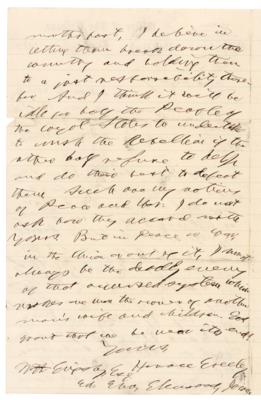 months past, I believe in
letting them break down the
country and holding them
to a just responsibility there-
for. And I think it will be
for half the People of
the loyal States to undertake
to crush the Rebellion if the
other half refuse to help
and do their best to defeat
them. Such are my notions
of Peace and War. I do not
ask how they accord with
yours. But in peace or war,
in the or out of it, I
always be the deadly enemy
of that accursed system which
makes one man the owner of another
man's wife and children. God
grant that we be near its end!
Yours,
Horace Greeley
Wm Esq
Ed.